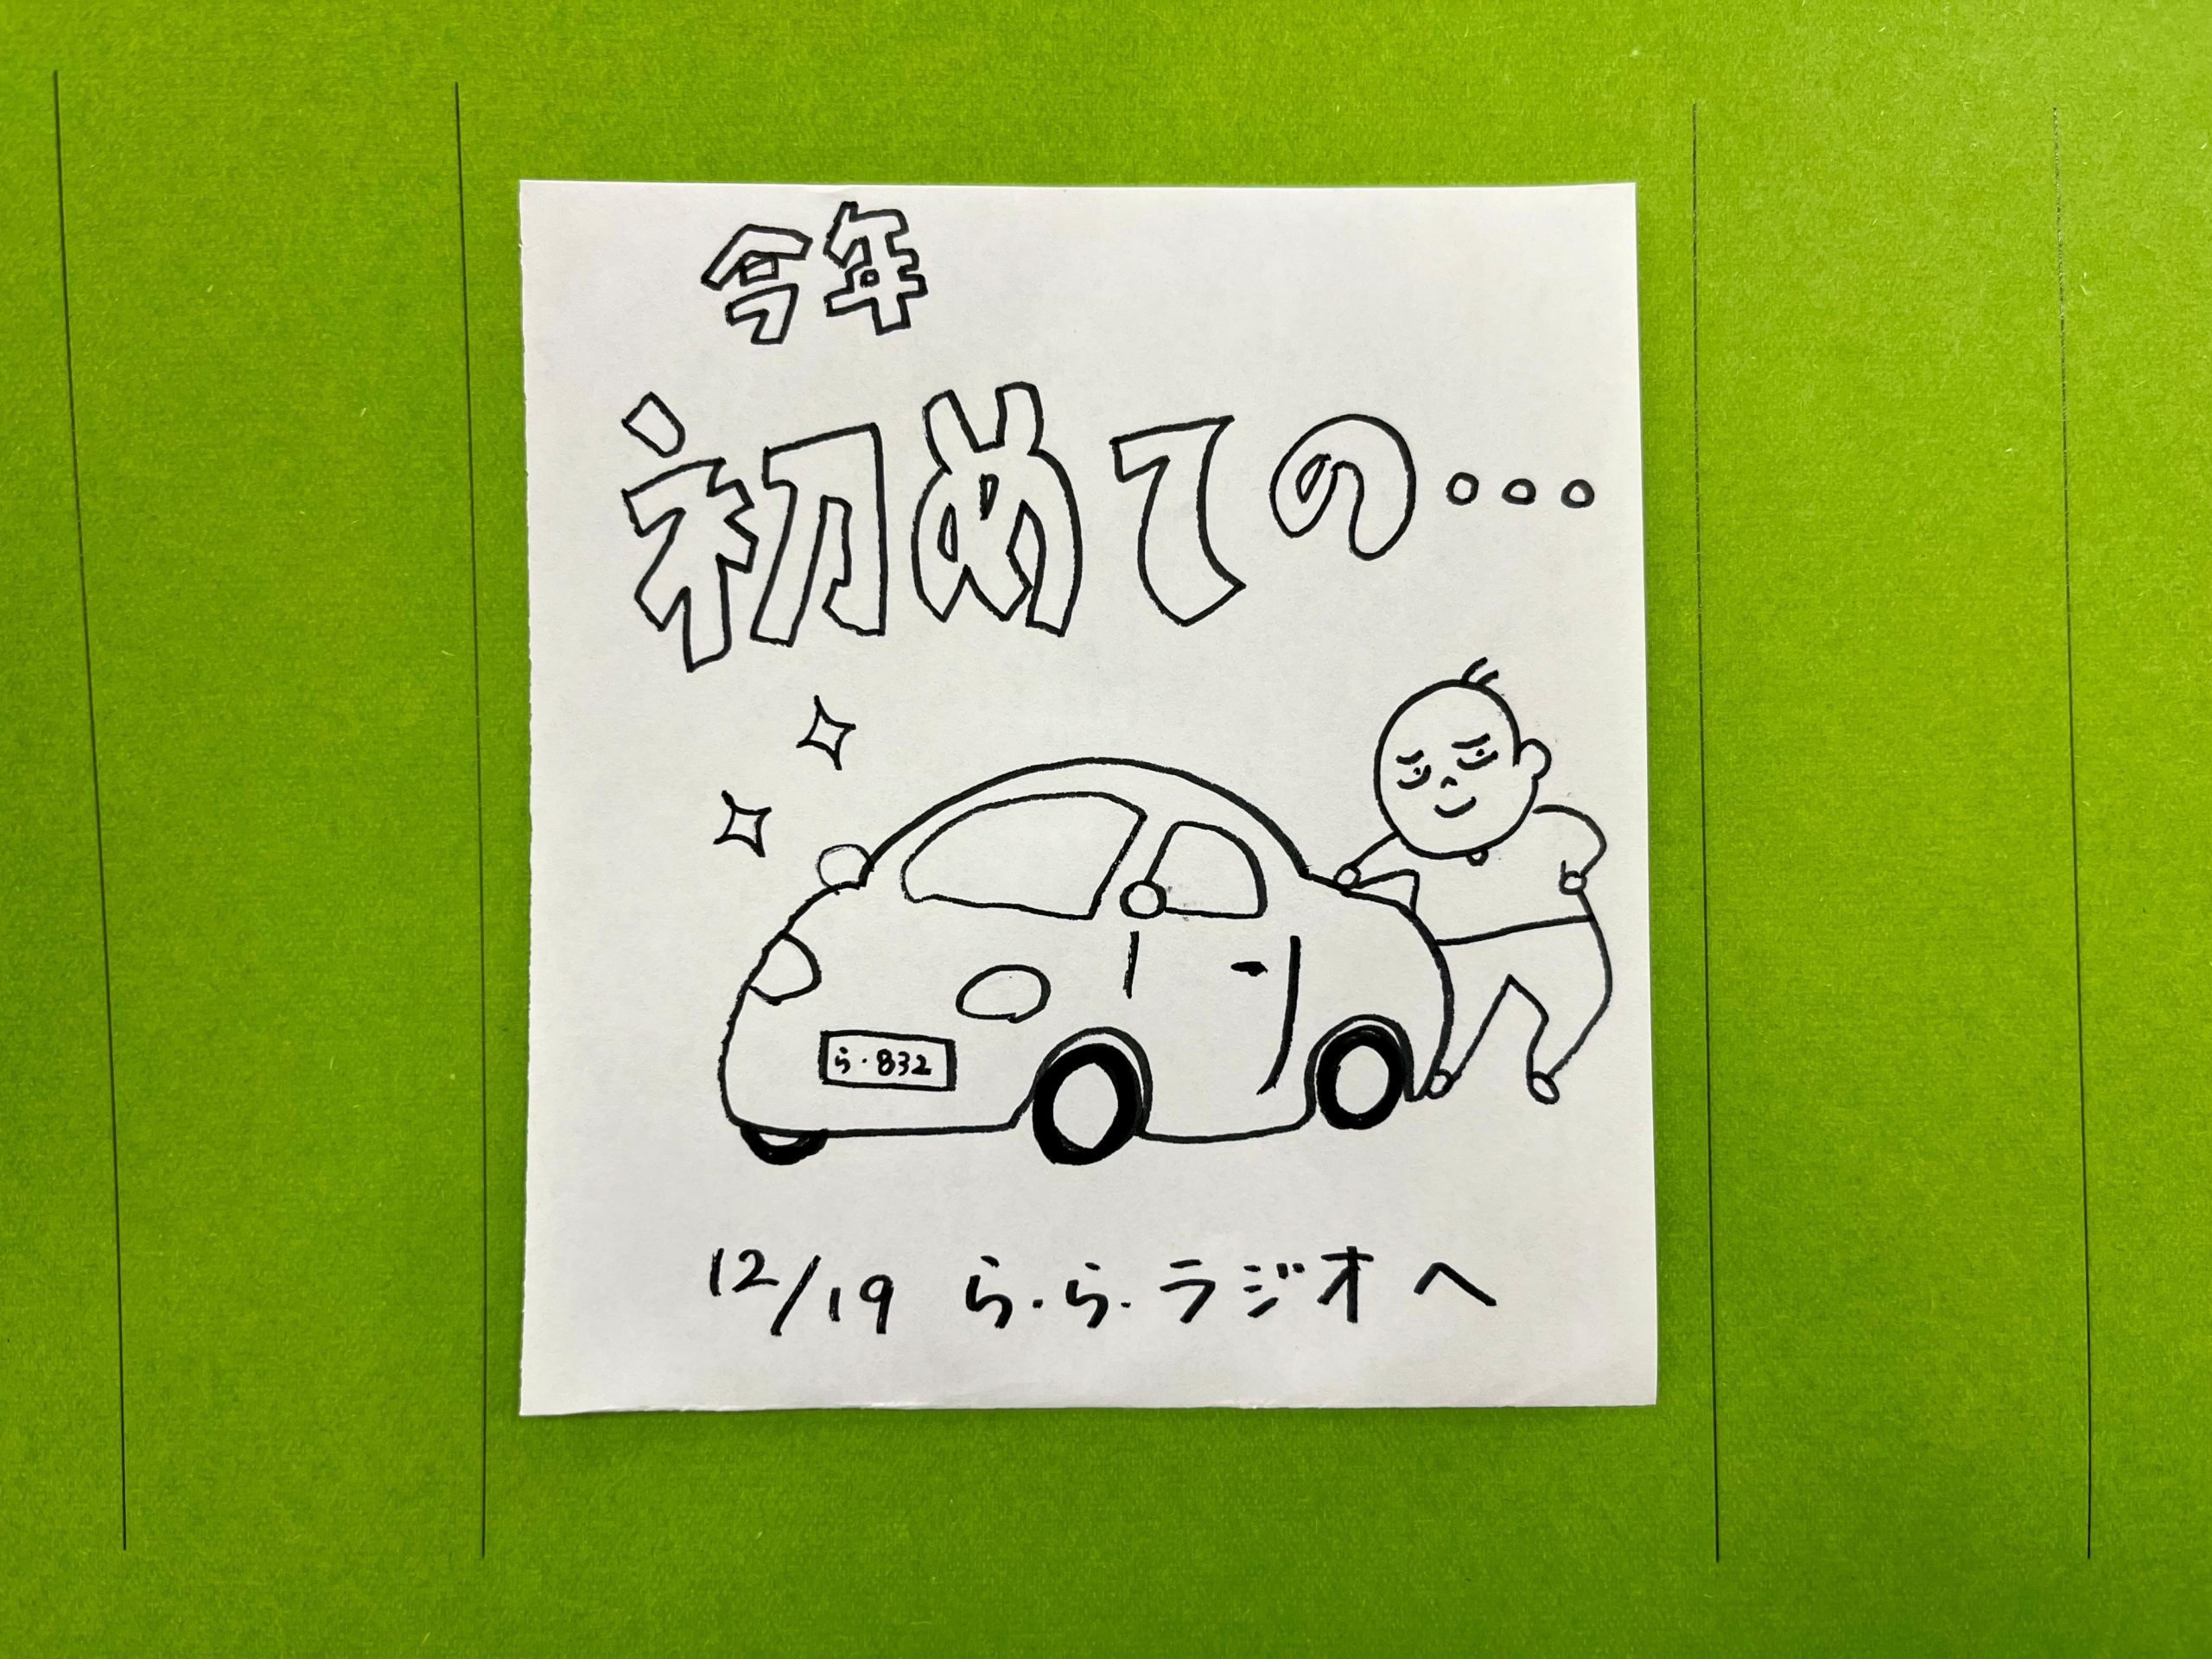 今年
初めての...
ら・832
12/19 ら・ら・ラジオへ